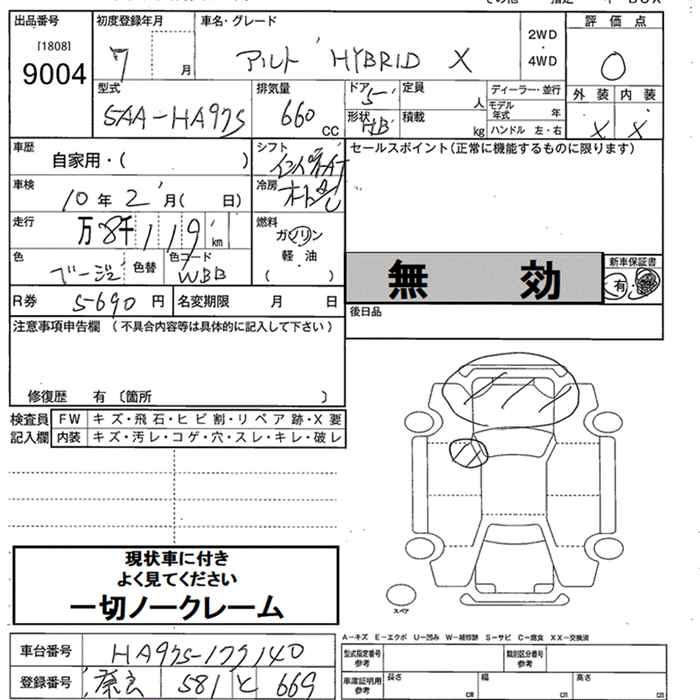 出品番号
[1808]
9004
初度登録年月
7 月
車名・グレード
アルト HYBRID X
2WD
・
4WD
評価点
0
型式
5AA-HA97S
排気量
660 CC
ドア
5
形状
HB
定員
人
積載
kg
ディーラー・並行
モデル年式 年
ハンドル 左・右
外装 内装
X X
車歴
自家用・( )
シフト
インパネAT
セールスポイント(正常に機能するものに限ります)
車検
10年 2月( 日)
冷房
走行
万 8千 119 km
燃料
ガソリン
軽・油
( ・ )
色
ベージュ
色替
色コード
WBB
無 効
新車保証書
有・
R券
5690 円
名変期限 月 日
後日品
注意事項申告欄 (不具合内容等は具体的に記入して下さい)
修復歴 有 〔箇所 〕
検査員
記入欄
FW キズ・飛石・ヒビ割・リペア跡・X要
内装 キズ・汚レ・コゲ・穴・スレ・キレ・破レ
現状車に付き
よく見てください
一切ノークレーム
スペア
A-キズ E-エクボ U-凹み W-補修跡 S-サビ C-腐食 XX-交換済
車台番号
HA97S-177140
型式指定番号
参考
類別区分番号
参考
登録番号
581 と 669
車庫証明用
参考
長さ cm
幅 cm
高さ cm